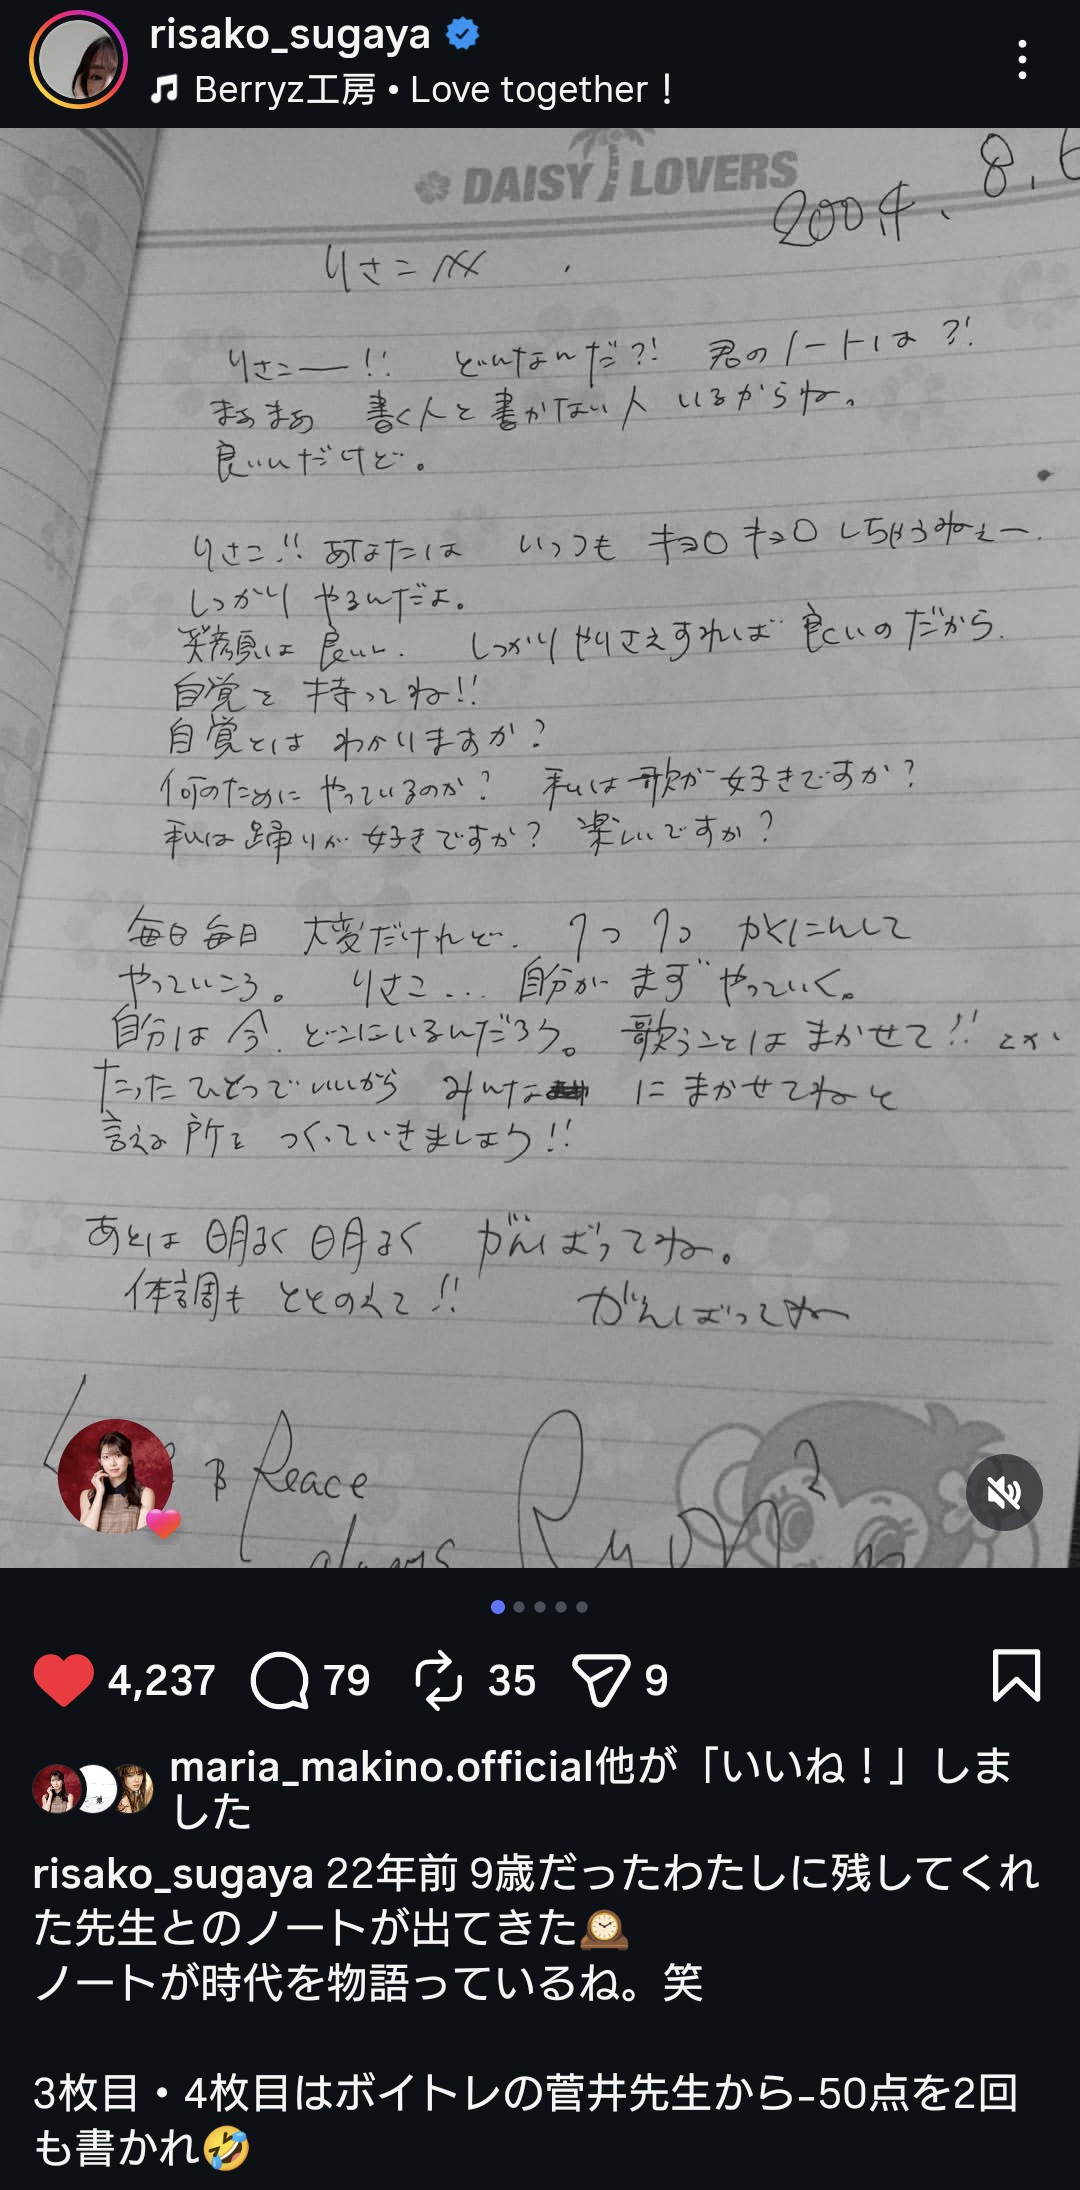 risako_sugaya
Berryz工房 • Love together！
DAISY LOVERS
2004. 8. 6
りさこ
りさこー!! どんなんだ?! 君のノートは?!
まぁまぁ 書く人と書かない人 いるからね。
良いんだけど。
りさこ!! あなたは いっつも キョロキョロしちゃうねぇー.
しっかり やるんだよ。
笑顔は 良いし. しっかりやりさえすれば 良いのだから.
自覚を 持ってね!!
自覚とは わかりますか?
何のために やっているのか? 私は歌が好きですか?
私は踊りが 好きですか? 楽しいですか?
毎日毎日 大変だけれど. 1つ 1つ かくにんして
やっていこう。 りさこ... 自分が まず やっていく。
自分は 今. どこにいるんだろう。 歌うことは まかせて!! とか
たったひとつで いいから みんな に まかせてねと
言える 所を つくっていきましょう!!
あとは 明るく 明るく がんばってね。
体調も ととのえて!! がんばってね
Peace
always
4,237 79 35 9
maria_makino.official他が「いいね！」しま
した
risako_sugaya 22年前 9歳だったわたしに残してくれ
た先生とのノートが出てきた🕰️
ノートが時代を物語っているね。笑
3枚目・4枚目はボイトレの菅井先生から-50点を2回
も書かれ🤣